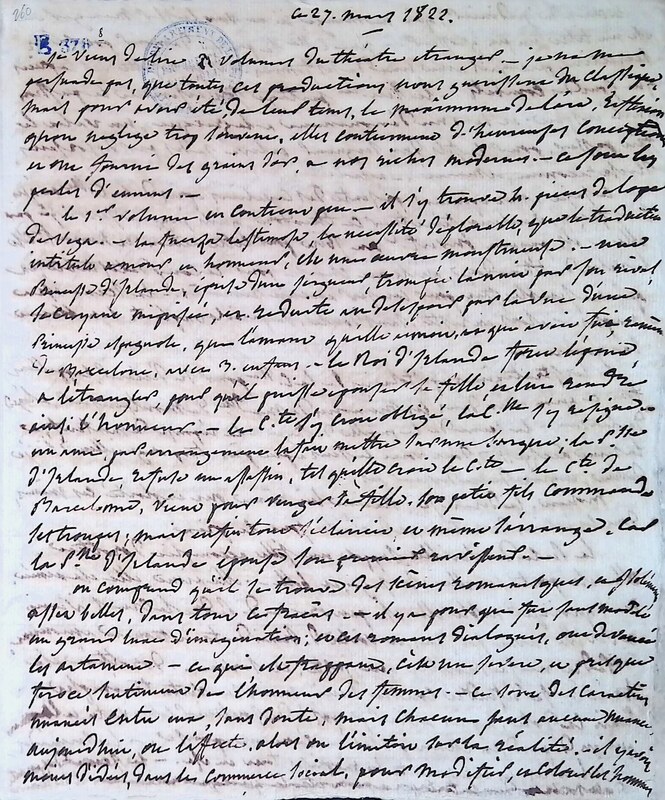 260
ce 27. mars 1822.
B. 378 8
je viens de lire 2 volumes du théatre etranger — je ne me
persuade pas, que toutes ces productions nous guerissent du classique,
mais pour avoir été de leur tems, le
qu'on neglige trop souvent, elles contiennent d'heureuses conceptions
et ont fourni des grains d'or, a nos riches modernes. — ce sont les
perles d'ennius. —
le 1er volume en contient peu — il s'y trouve pieces de lope
de Vega. — la force la necessité déplorable, que le traducteur
intitule amour et honneur, est une œuvre monstrueuse. — une
Princesse d'Irlande, éprise d'un seigneur, trompée la nuit par son rival
se croyant méprisée, est reduite au desespoir par la vue d'une
Princesse espagnole, que l'amant qu'elle aimoit, et que avoit
de Barcelone, avec 3. enfans. — le Roi d'Irlande force
a l'étranger pour qu'il puisse épouser sa fille et lui rendre
ainsi l'honneur. — le Cte s'y croit obligé, la Ctesse s'y résigne —
un ami, par arrangement la fait mettre sur une barque, la Psse
d'Irlande, refuse un assassin, tel qu'elle croit le Cte — le Cte de
Barcelone, vient pour venger sa fille. son petit fils commande
les troupes, mais enfin tout s'éclaircit, et même s'arrange. car
la Psse d'Irlande épouse son premier —
on comprend qu'il se trouve des scènes romanesques, et
assez belles, dans tout ce fracas. — il y a pour qui sans modèle
un grand luxe d'imagination; et ces romans dialogués, ont devancé
les — ce qui est frappant, c'est un sévère, et presque
feroce sentiment de l'honneur des femmes. — ce sont des caractères
entre eux, sans doute, mais chacun peut
aujourd'hui, on l'affecte, alors on l'imitoit sur la réalité. — il y avoit
moins d'idées, dans le commerce social, pour modifier, et colorer les hommes